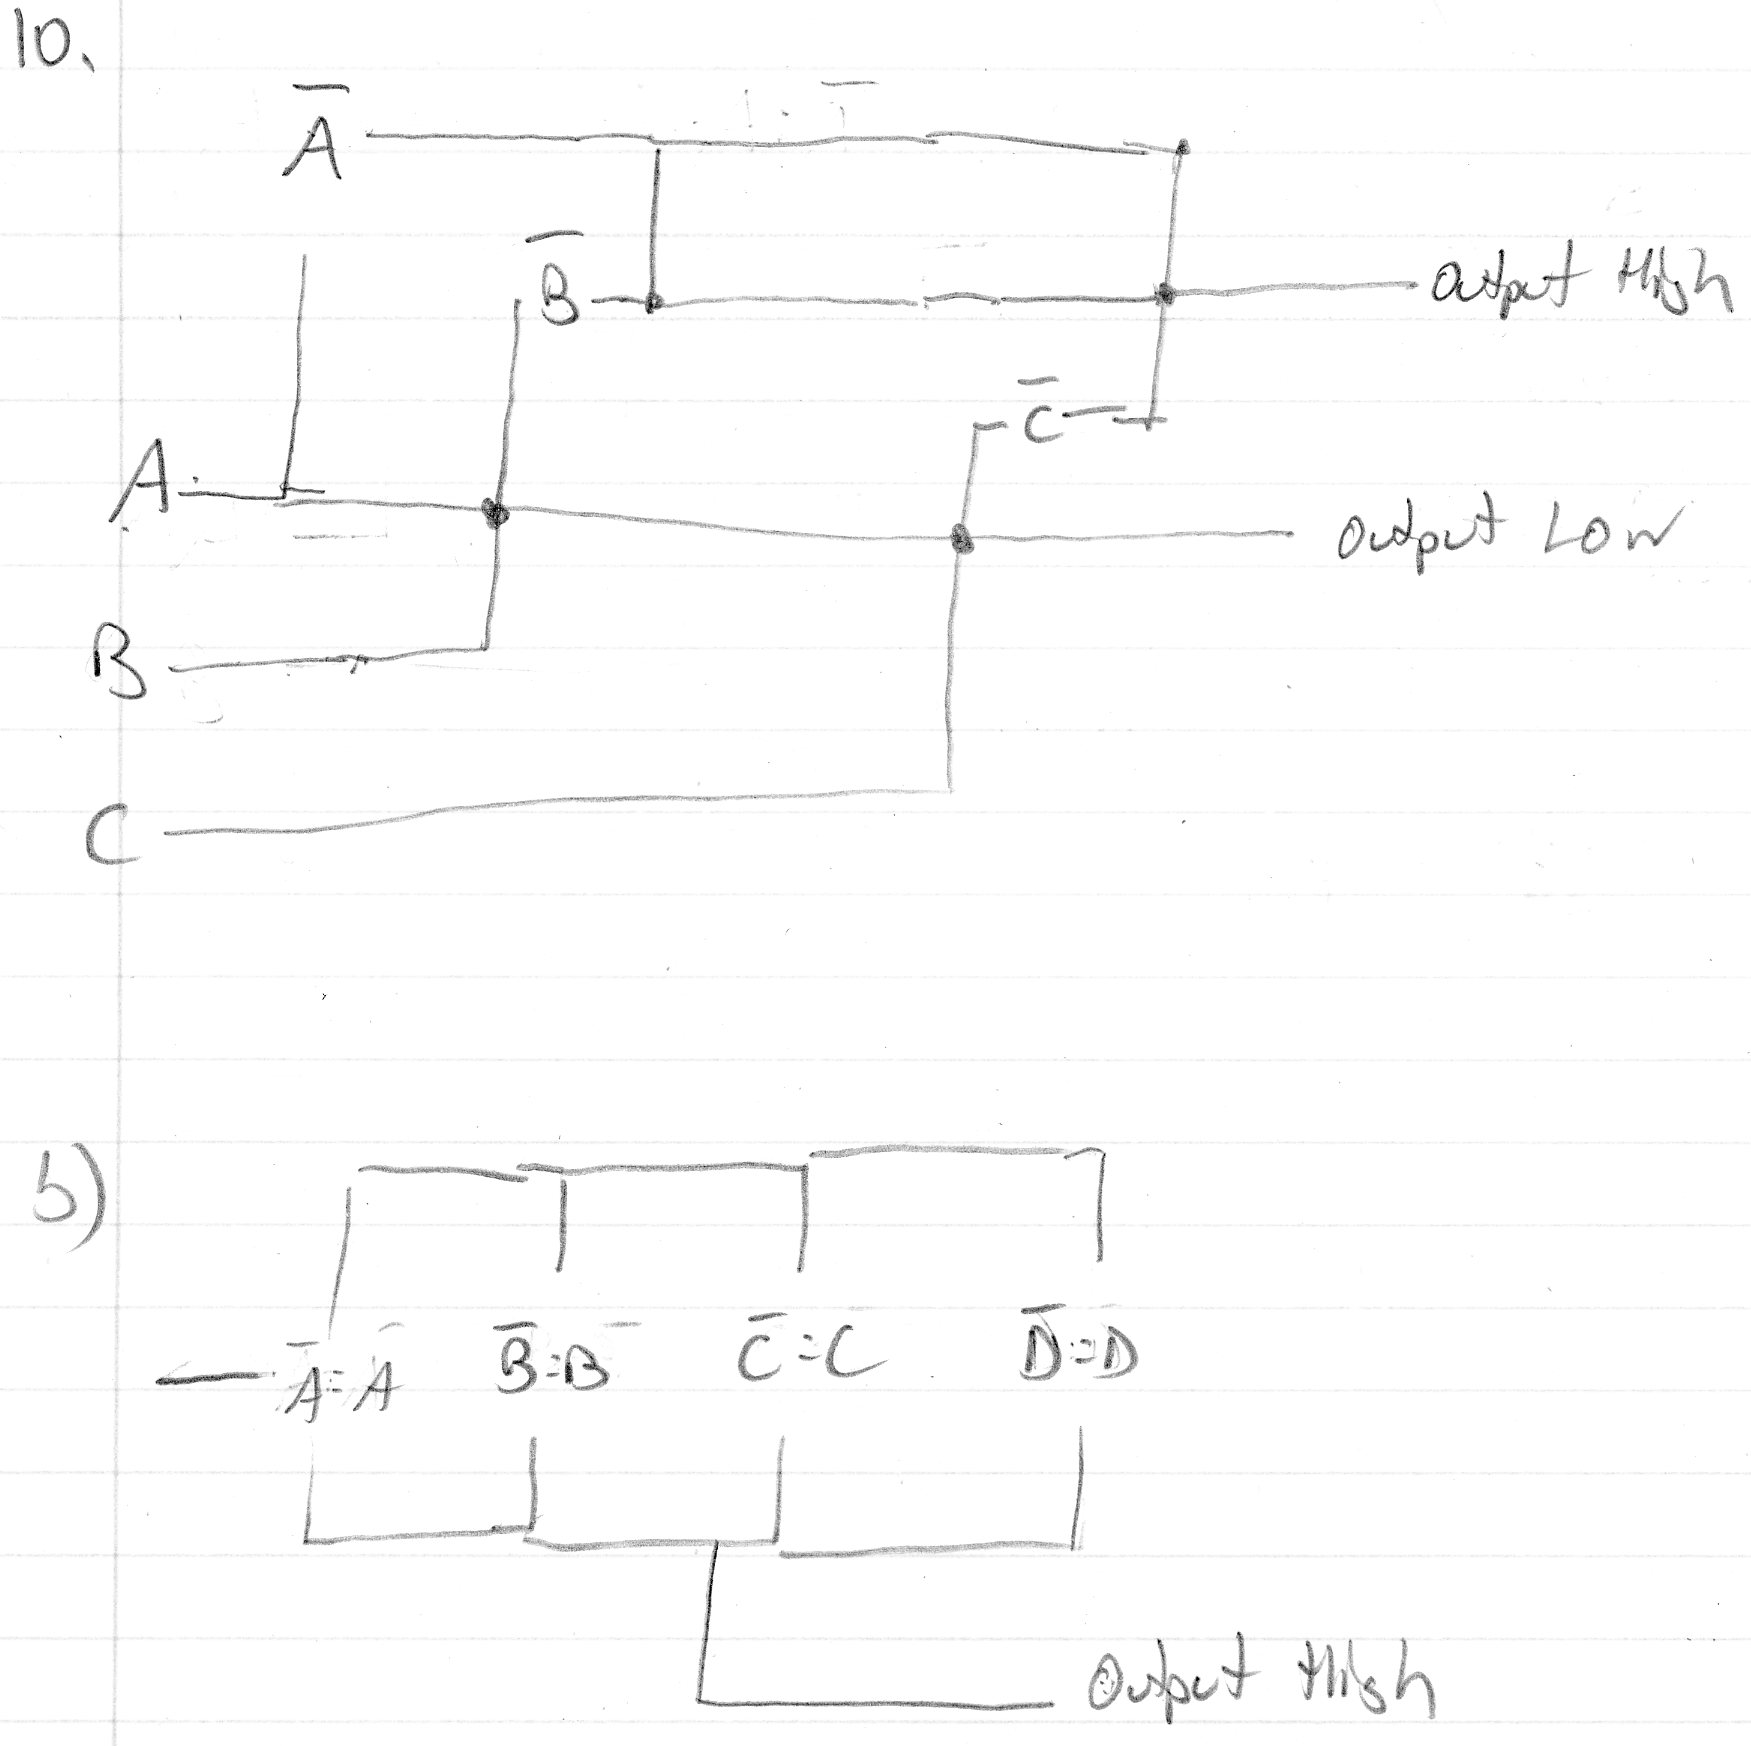 10.
A̅
B̅ Output High
C̅
A Output Low
B
C
b)
A̅=A B̅=B C̅=C D̅=D
Output High